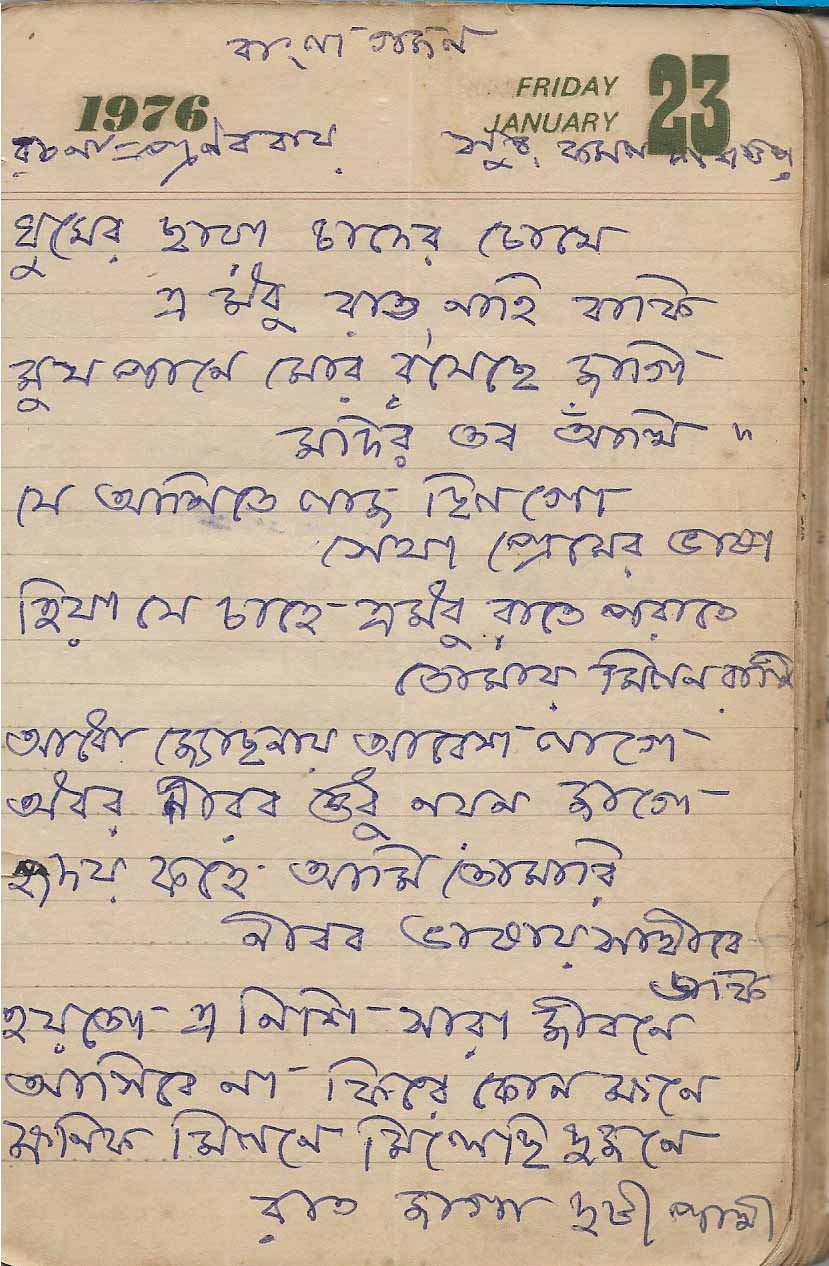 বাংলা গজল
1976 FRIDAY JANUARY 23
রচনা = প্রণব রায় সুর: কমল দাশগুপ্ত
ঘুমের ছায়া চাঁদের চোখে
এ মধু রাত নাহি বাকি
মুখ পানে মোর রয়েছে জাগি
মদির তব আঁখি "
যে আঁখিতে লাজ ছিল গো
সেথা প্রেমের ভাষা
হিয়া যে চাহে এ মধু রাতে পরাতে
তোমায় মিলন রাখি
আধো জ্যোছনায় আবেশ লাগে
অধর নীরব শুধু নয়ন জাগে
হৃদয় কহে আমি তোমারি
নীরব ভাষায় সাথীরে
ডাকি
হয়তো এ নিশি সারা জীবনে
আসিবে না ফিরে কোন ক্ষনে
ক্ষনিক মিলনে মিলেছি দুজনে
রাত জাগা দুটী পাখী